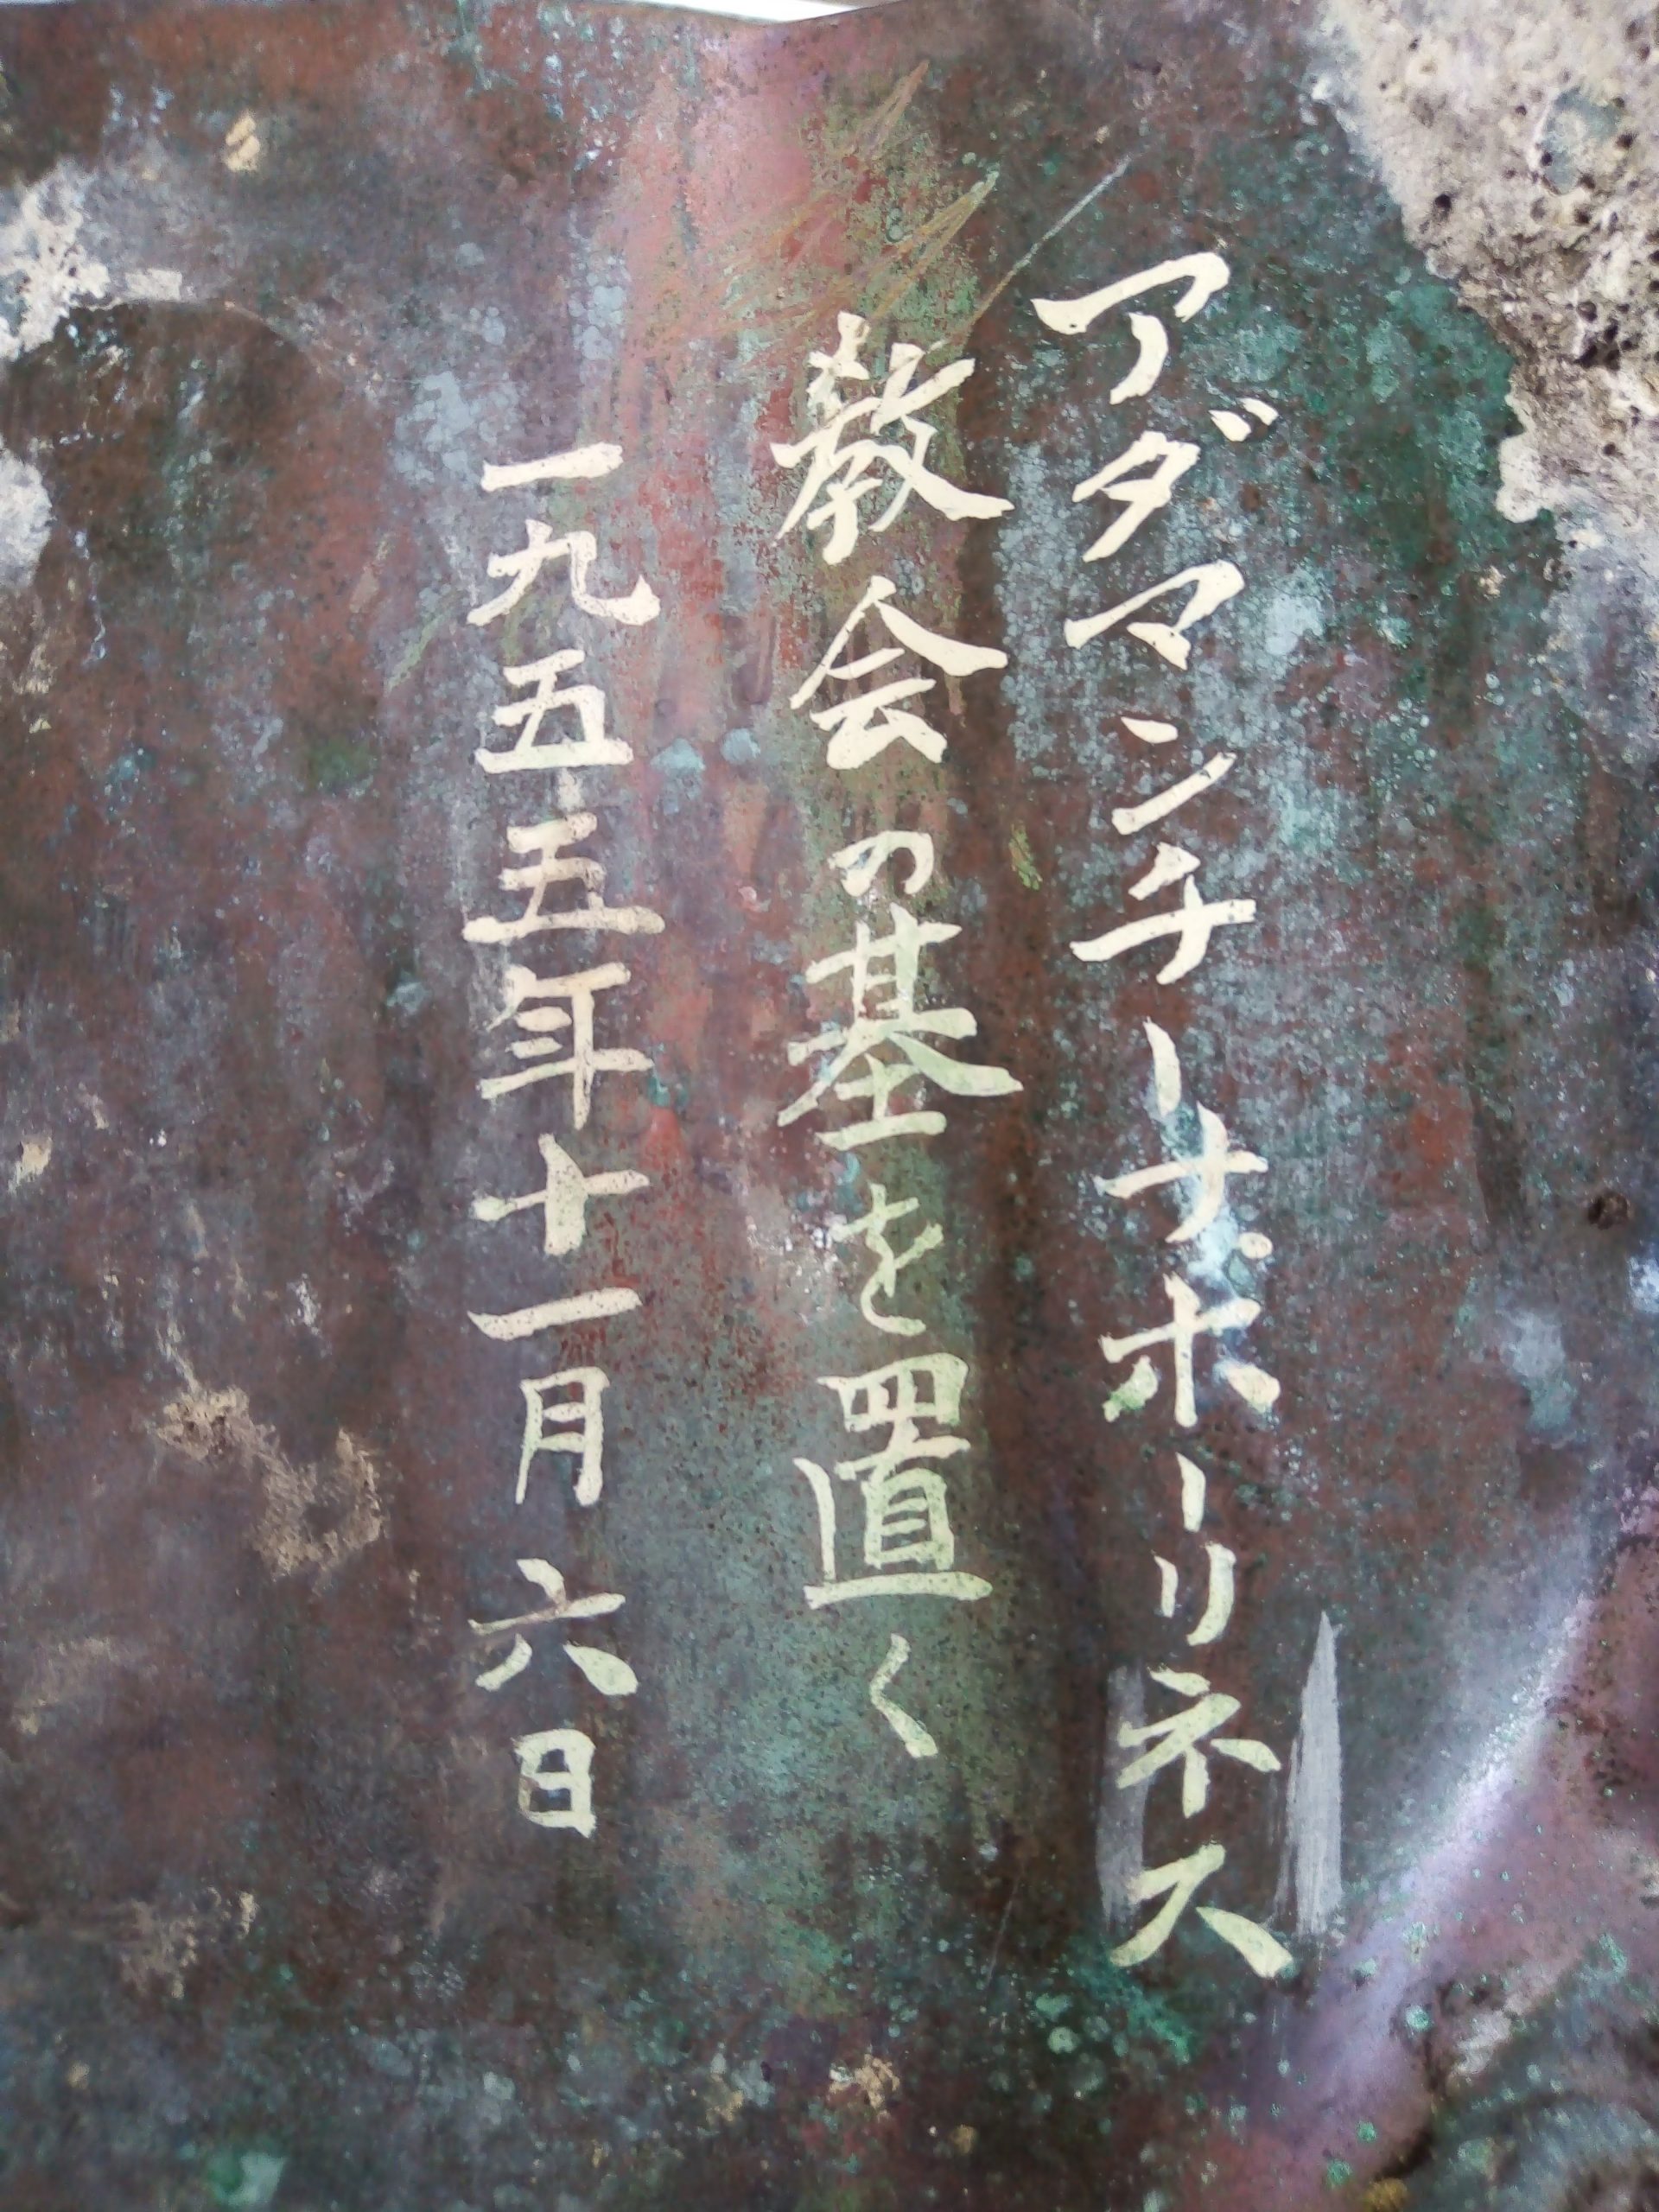 アダマンチーナポーリネス
教会の基を置く
一九五五年十一月六日